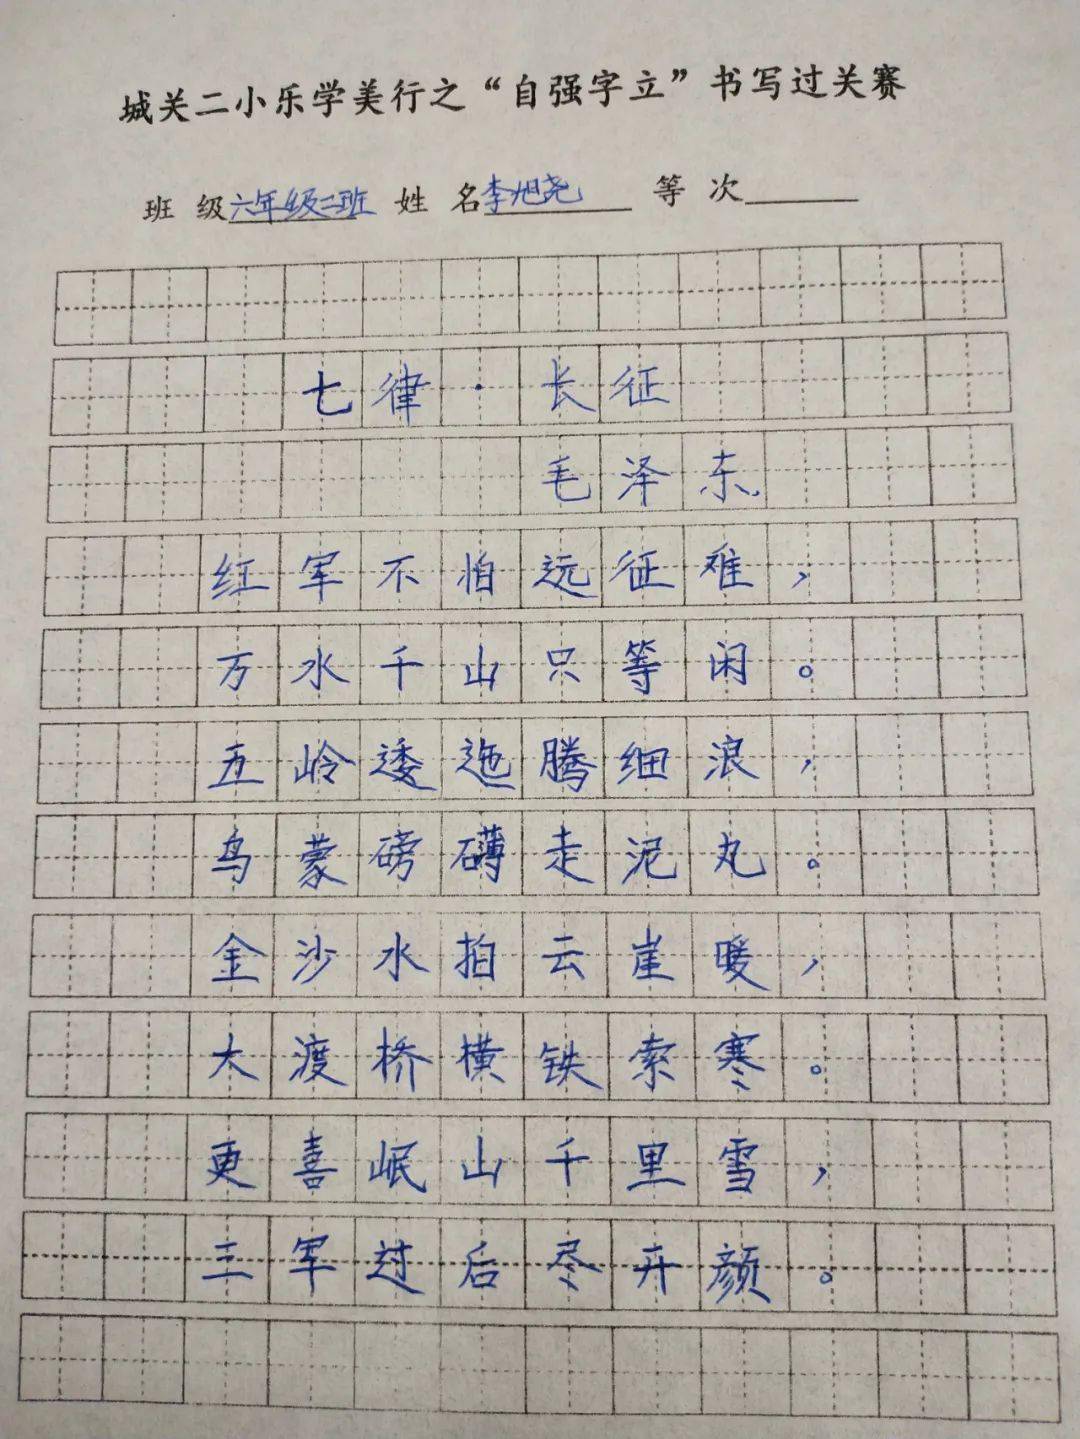 城关二小乐学美行之“自强字立”书写过关赛
班 级六年级二班 姓 名李旭尧 等 次
七律·长征
毛泽东
红军不怕远征难，
万水千山只等闲。
五岭逶迤腾细浪，
乌蒙磅礴走泥丸。
金沙水拍云崖暖，
大渡桥横铁索寒。
更喜岷山千里雪，
三军过后尽开颜。